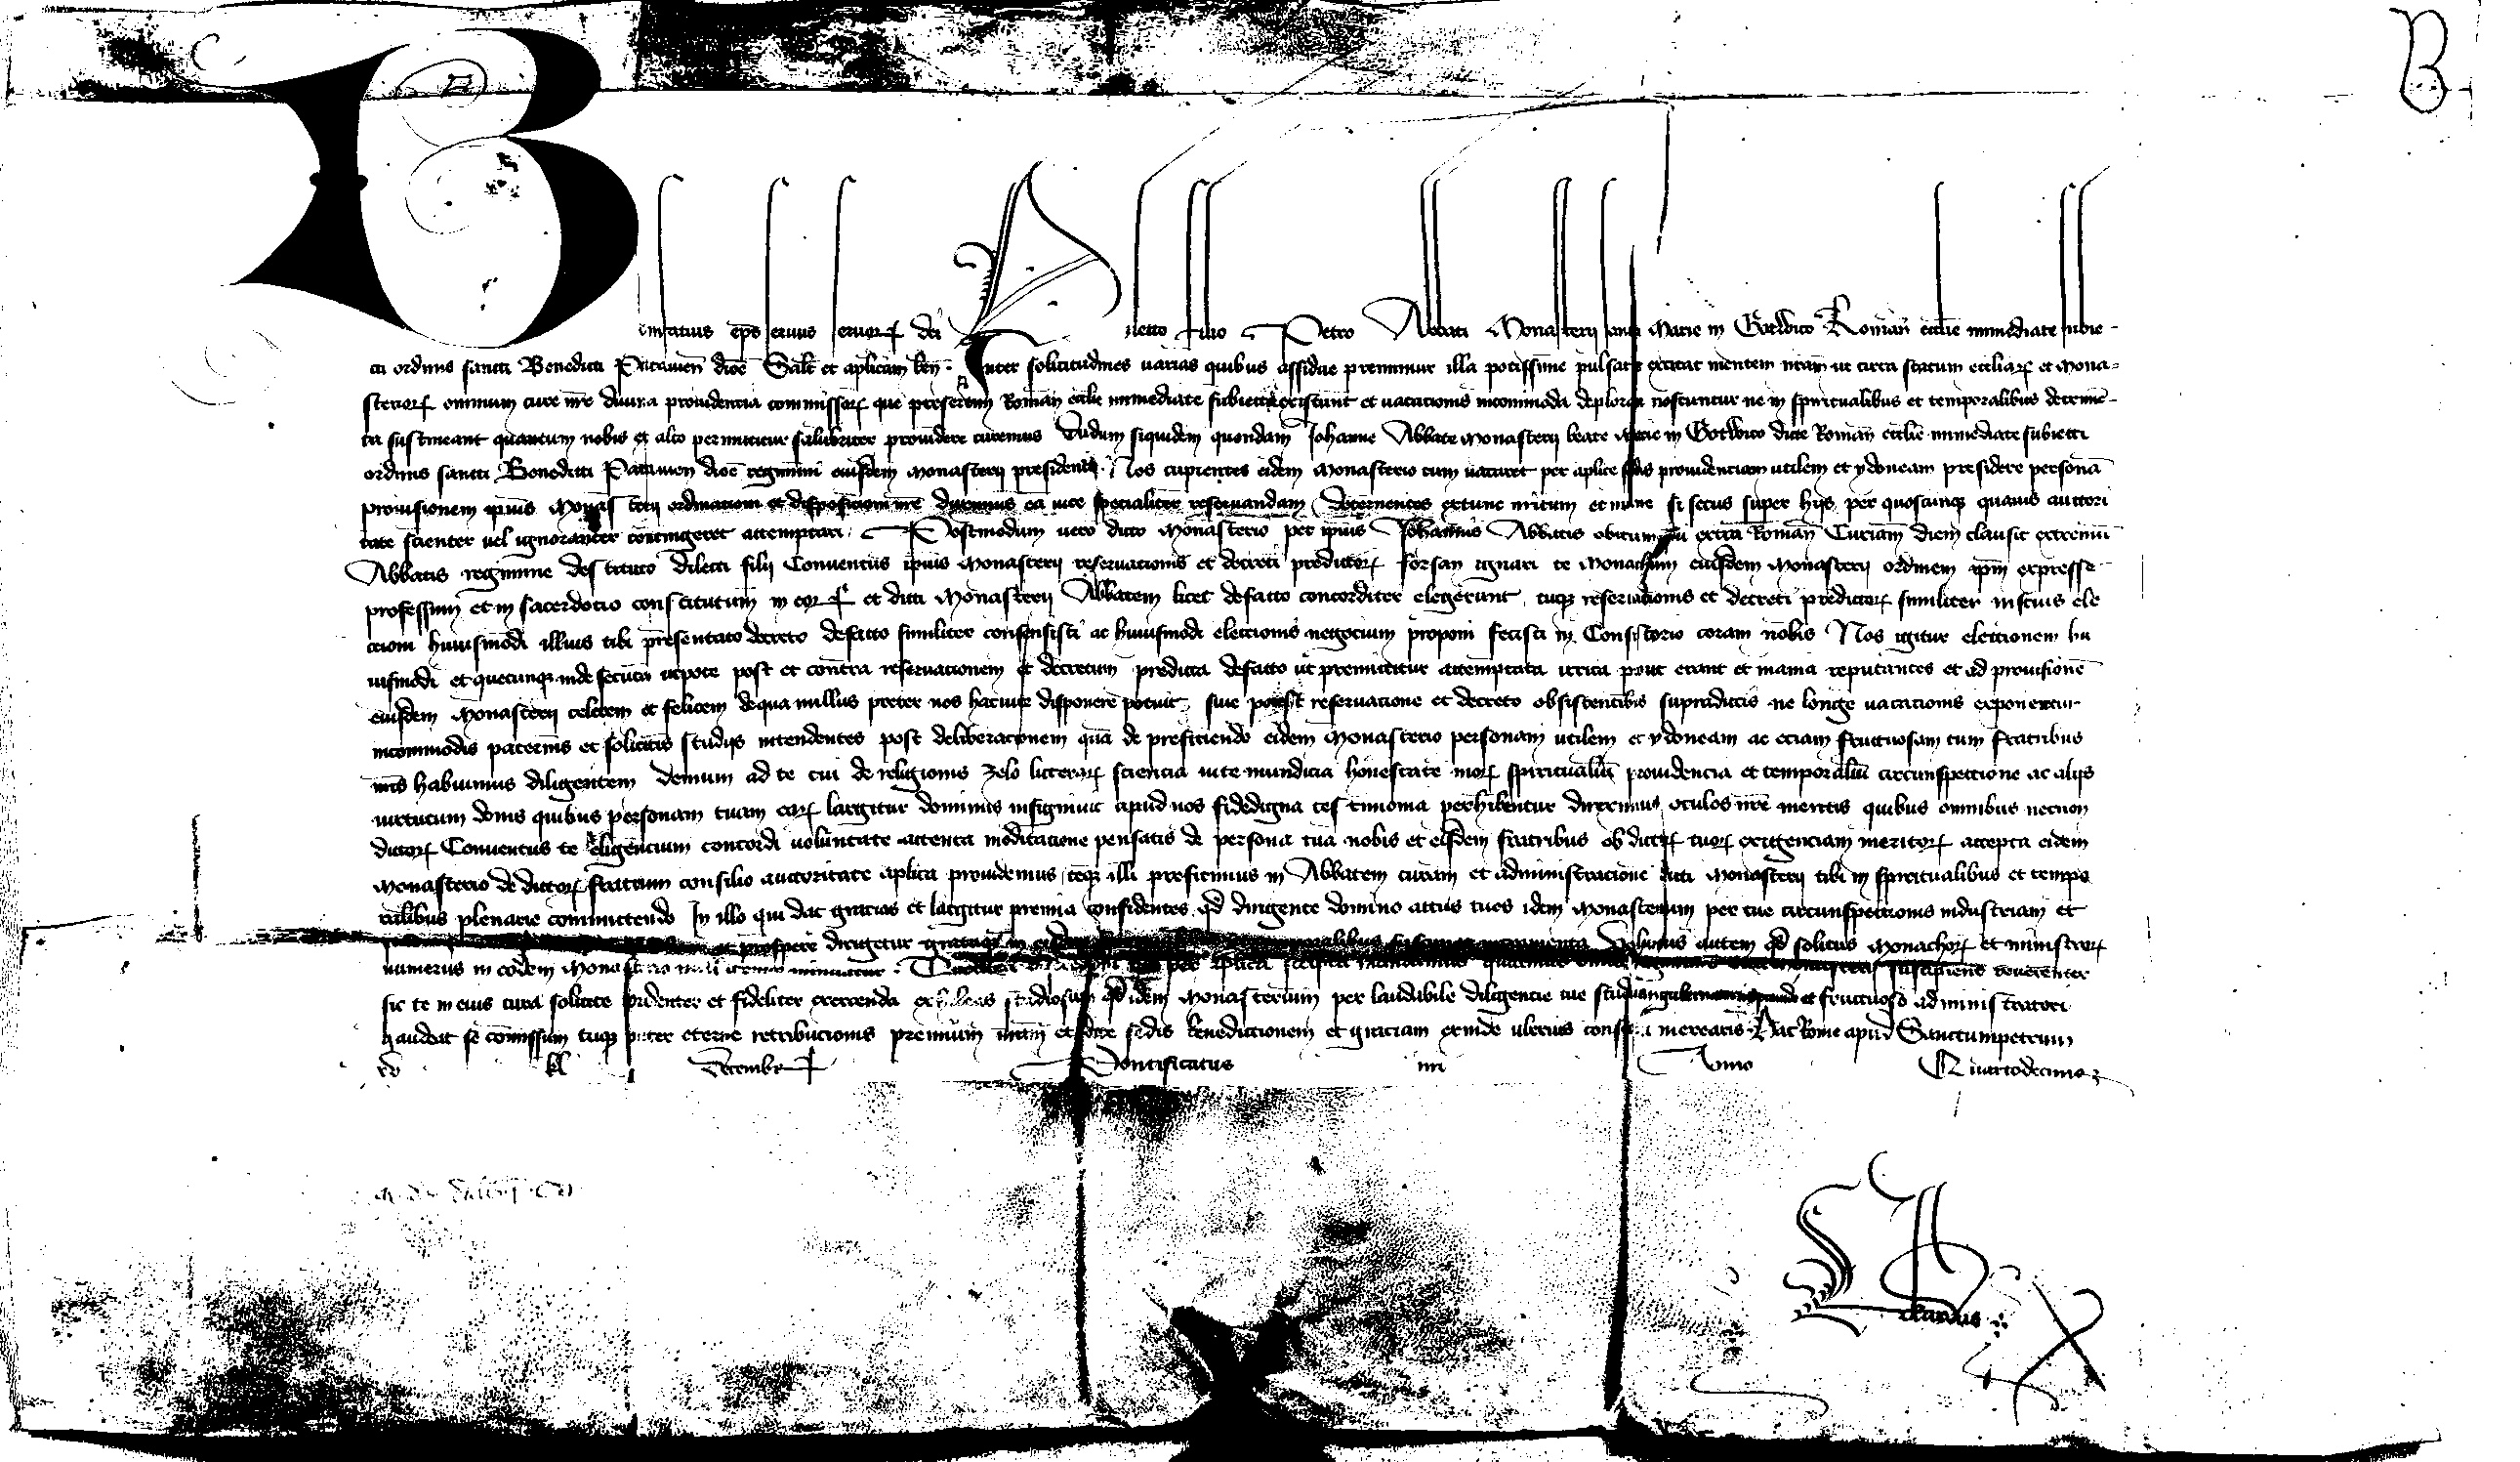 B
Bonifatius ep̄s seruus seruoꝝ dei Dilecto filio Petro Abbati Monasterij sancte Marie in Gotwico Roman̄ ecclīe immediate subie-
cti ordinis sancti Benedicti Patauien̄ dioc̄ Salt̄ et aplicam ben̄. Inter solicitudines varias quibus assidue premimur illa potissime pulsat excitat mentem nr̄am ut circa statum eccliaꝝ et Mona-
sterioꝝ omnium cure nr̄e diuina prouidencia commissoꝝ que presertim Roman̄ ecclie immediate subiecta existunt et vacacionis incommoda deplorare noscuntur ne in spiritualibus et temporalibus detrimē-
ta sustineant quantum nobis ex alto permittitur salubriter prouidere curemus Dudum siquidem quondam Johanne Abbate Monasterij beate Marie in Gotwico dicte Roman̄ ecclie immediate subiecti
ordinis sancti Benedicti Patauien̄ dioc̄ regimini eiusdem Monasterij presidente Nos cupientes eidem Monasterio cum vacaret per aplice sedis prouidenciam utilem et ydoneam presidere personā
prouisionem ipius Monasterij ordinacioni et disposicioni nr̄e duximus ea vice specialiter reseruandam Decernentes extunc irritum et inane si secus super hijs per quoscunqꝫ quauis auctori
tate scienter uel ignoranter contingeret attemptari Postmodum uero dicto Monasterio per ipius Johannis Abbatis obitum qui extra Roman̄ Curiam diem clausit extremū
Abbatis regimine destituto Dilecti filij Conuentus ipius Monasterij reseruacionis et decreti predictoꝝ forsan ignari te Monachum eiusdem Monasterij ordinem ip̄m expresse
professum et in sacerdocio constitutum in eoꝝ et dicti Monasterij Abbatem licet defacto concorditer elegerunt tuqꝫ reseruacionis et decreti predictoꝝ similiter inscius ele
ctioni huiusmodi illius tibi presentato decreto defacto similiter consensisti ac huiusmodi electionis negocium proponi fecisti in Consistorio coram nobis Nos igitur electionem hu
iusmodi et quecunqꝫ inde secuta utpote post et contra reseruacionem et decretum predicta defacto ut premittitur attemptata irrita prout erant et inania reputantes et ad prouisionē
eiusdem Monasterij celerem et felicem de qua nullus preter nos hac uice disponere potuit siue potest reseruacione et decreto obsistentibus supradictis ne longe vacacionis exponeretur
incommodis paternis et solicitis studijs intendentes post deliberacionem quā de preficiendo eidem Monasterio personam utilem et ydoneam ac eciam fructuosam cum fratribus
nr̄is habuimus diligentem Demum ad te cui de religionis zelo litteraꝝ sciencia vite mundicia honestate moꝝ spiritualiū prouidencia et temporaliū circunspectione ac alijs
uirtutum donis quibus personam tuam eaꝝ largitur dominus insigniuit apud nos fidedigna testimonia perhibentur direximus oculos nr̄e mentis quibus omnibus necnon
dictoꝝ Conuentus te eligencium concordi uoluntate attenta meditacione pensatis de persona tua nobis et eisdem fratribus ob dictoꝝ tuoꝝ exigenciam meritoꝝ accepta eidem
Monasterio de dictoꝝ fratrum consilio auctoritate aplica prouidemus teqꝫ illi preficimus in Abbatem curam et administracionē dicti Monasterij tibi in spiritualibus et tempo
ralibus plenarie committendo In illo qui dat gracias et largitur premia confidentes qd̄ dirigente domino actus tuos idem Monasterium per tue circunspectionis industriam et
et prospere dirigetur Volumus autem qd̄ solitus Monachoꝝ et ministroꝝ
numerus in eodem Monasterio minuatur suscipiens reuerenter
sic te in eius cura solicite prudenter et fideliter exercenda exhibeas studiosum qd̄ idem Monasterium per laudabile diligencie tue studium gubernatori prouido et fructuoso administratori
gaudeat se commissum tuqꝫ preter eterne retribucionis premium nr̄am et dicte sedis benedictionem et graciam exinde uberius consequi merearis Dat Rome apud Sanctumpetrum
xv kl̄ Decembꝝ Pontificatus nr̄i Anno Quartodecimo